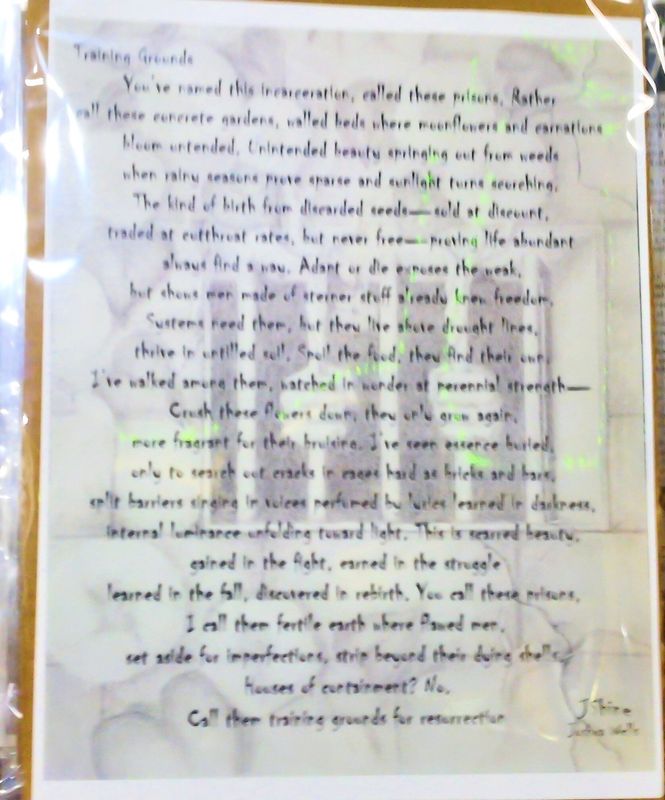 Training Grounds
You've named this incarceration, called these prisons. Rather
call these concrete gardens, walled beds where moonflowers and carnations
bloom untended. Unintended beauty springing out from weeds
when rainy seasons prove sparse and sunlight turns scorching.
The kind of birth from discarded seeds—sold at discount,
traded at cutthroat rates, but never free—proving life abundant
always find a way. Adapt or die exposes the weak,
but shows men made of sterner stuff already knew freedom.
Systems need them, but they live above drought lines,
thrive in untilled soil. Spoil the food, they find their own.
I've walked among them, watched in wonder at perennial strength—
Crush these flowers down, they only grow again,
more fragrant for their bruising. I've seen essence buried,
only to search out cracks in cages hard as bricks and bars,
split barriers singing in voices perfumed by lyrics learned in darkness,
internal luminance unfolding toward light. This is scarred beauty,
gained in the fight, earned in the struggle
learned in the fall, discovered in rebirth. You call these prisons,
I call them fertile earth where flawed men,
set aside for imperfections, strip beyond their dying shells.
Houses of containment? No.
Call them training grounds for resurrection
Wells